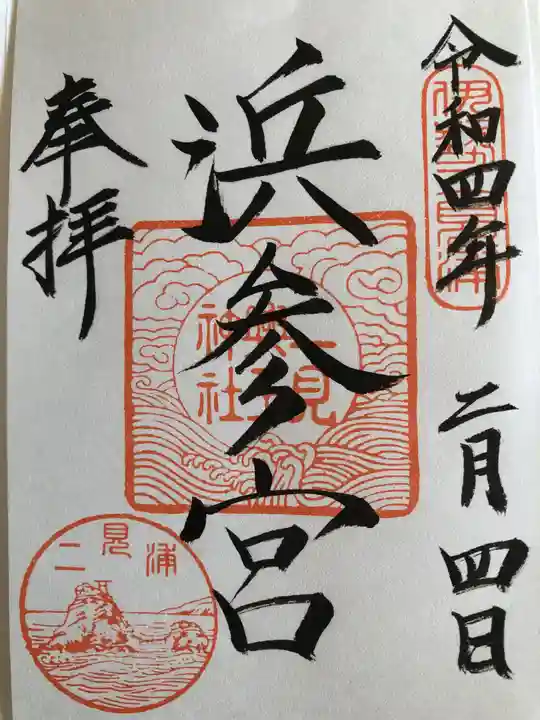 令和四年 二月四日
伊勢二見浦
浜参宮
二見興玉神社
奉拝
二見浦